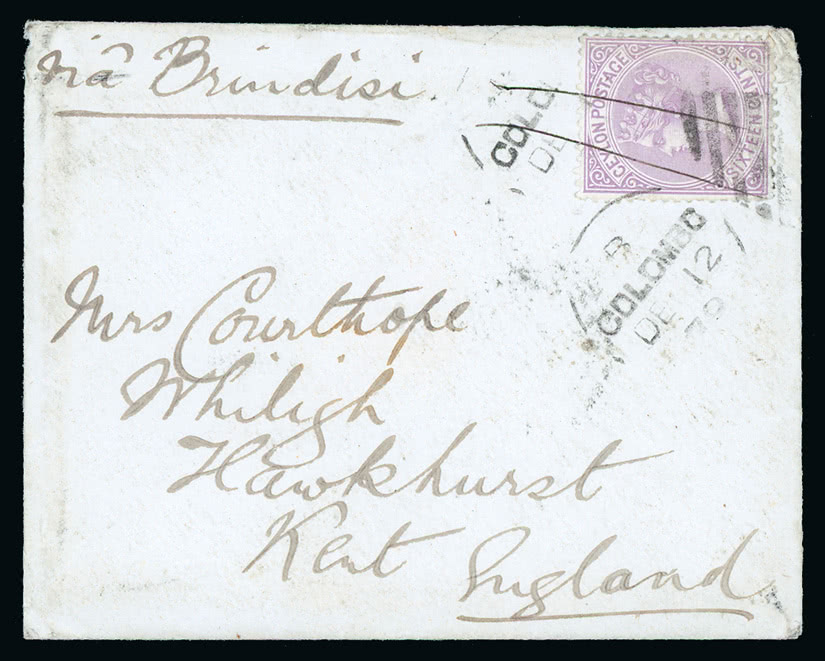 viâ Brindisi
CEYLON POSTAGE
SIXTEEN CENTS
COLO
DE
B
COLOMBO
DE 12
Mrs Courthope
Whiligh
Hawkhurst
Kent
England